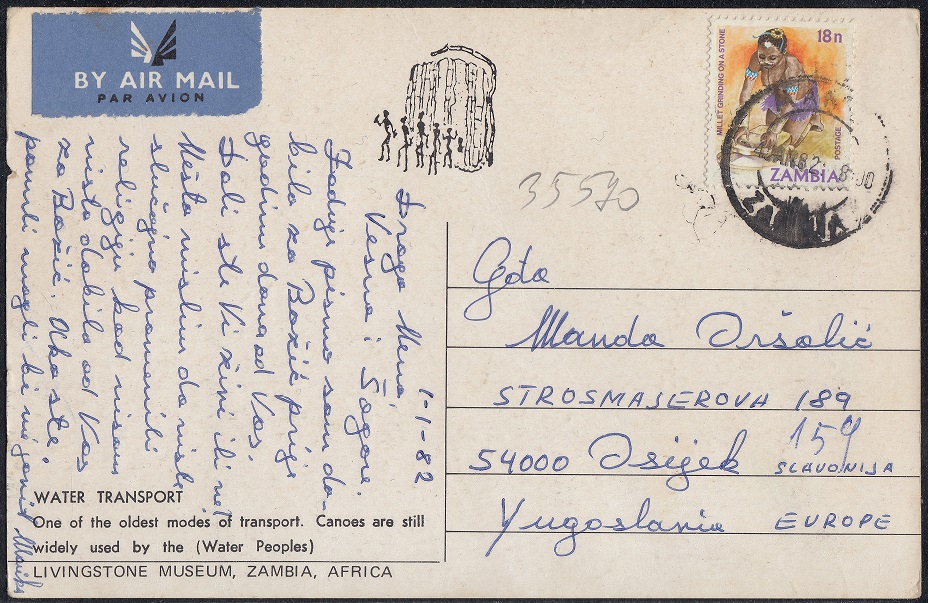 BY AIR MAIL
PAR AVION
MILLET GRINDING ON A STONE
18n
POSTAGE
ZAMBIA
JAN 82
35570
1-1-82
Draga Mena,
Vesna i Šagore.
Zadnje pismo sam do-
bila za Božić prije
godinu dana od Vas.
Dali ste Vi živi ili ne!
Nešta mislim da niste
slučajno promenili
religiju kad nisam
ništa dobila od Vas
za Božić. Ako ste
pomrli mogli bi mi javit
Gđa
Manda Oršolić
STROSMAJEROVA 189
154
54000 Osijek SLAVONIJA
Yugoslavia EUROPE
WATER TRANSPORT
One of the oldest modes of transport. Canoes are still
widely used by the (Water Peoples)
LIVINGSTONE MUSEUM, ZAMBIA, AFRICA